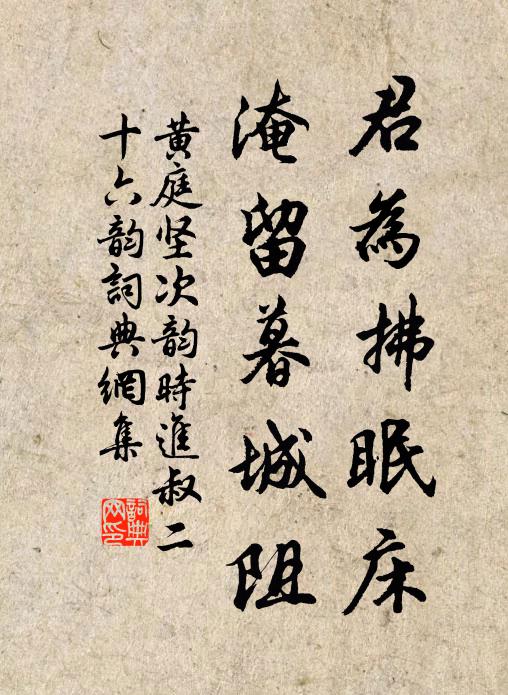 君為拂眠床
淹留暮城阻
黄庭坚次韵時進叔二
十六韵詞典網集
詞典
网印